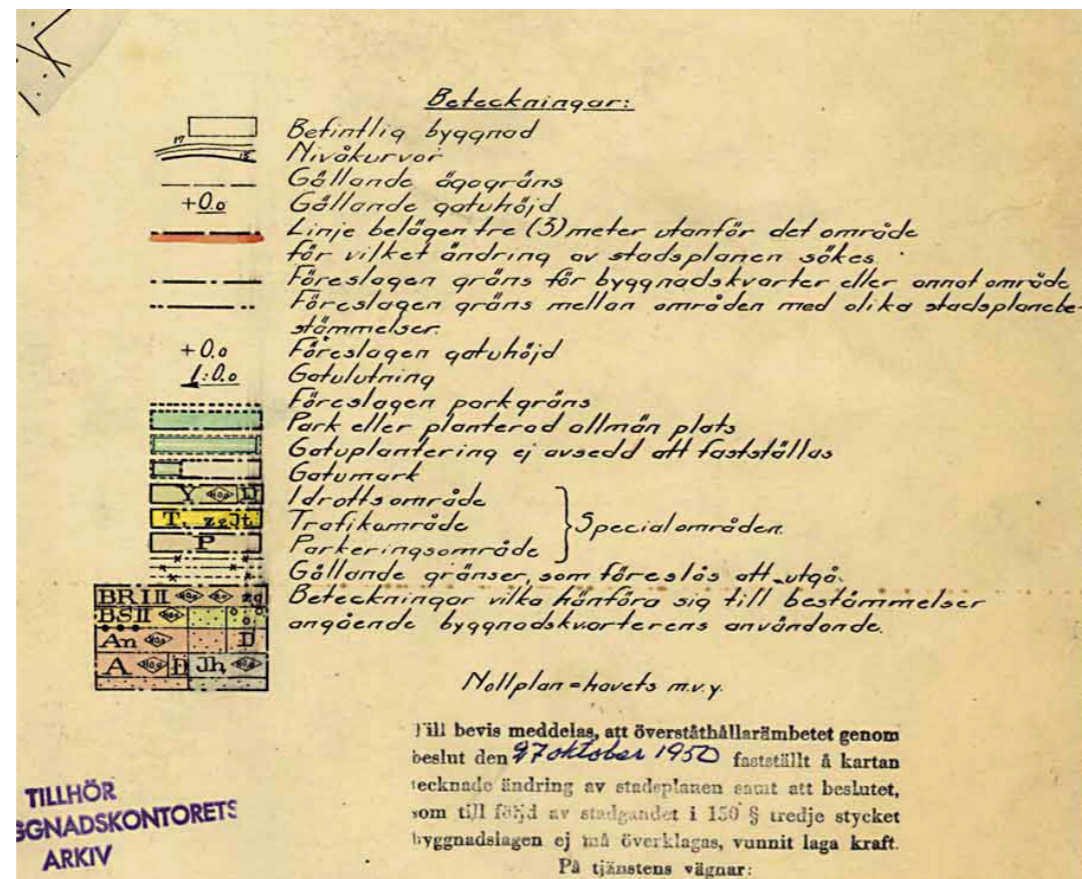 Beteckningar:
Befintlig byggnad
17
15
Nivåkurvor
Gällande ägogräns
+0.0
Gällande gatuhöjd
Linje belägen tre (3) meter utanför det område
för vilket ändring av stadsplanen sökes.
Föreslagen gräns för byggnadskvarter eller annat område
Föreslagen gräns mellan områden med olika stadsplanebe-
stämmelser.
+0.0 Föreslagen gatuhöjd
1:0.0 Gatulutning
Föreslagen parkgräns
Park eller planterad allmän plats
Gatuplantering ej avsedd att fastställas
Gatumark
Y Idrottsområde
T. Trafikområde
Specialområden.
P Parkeringsområde
Gällande gränser, som föreslås att utgå.
BRIII Beteckningar vilka hänföra sig till bestämmelser
BSII angående byggnadskvarterens användande.
An D
A D Jh
Nollplan=havets m.v.y.
Till bevis meddelas, att överståthållarämbetet genom
beslut den 27 oktober 1950 fastställt å kartan
tecknade ändring av stadsplanen samt att beslutet,
som till följd av stadgandet i 150 § tredje stycket
byggnadslagen ej må överklagas, vunnit laga kraft.
På tjänstens vägnar:
TILLHÖR
GGNADSKONTORETS
ARKIV